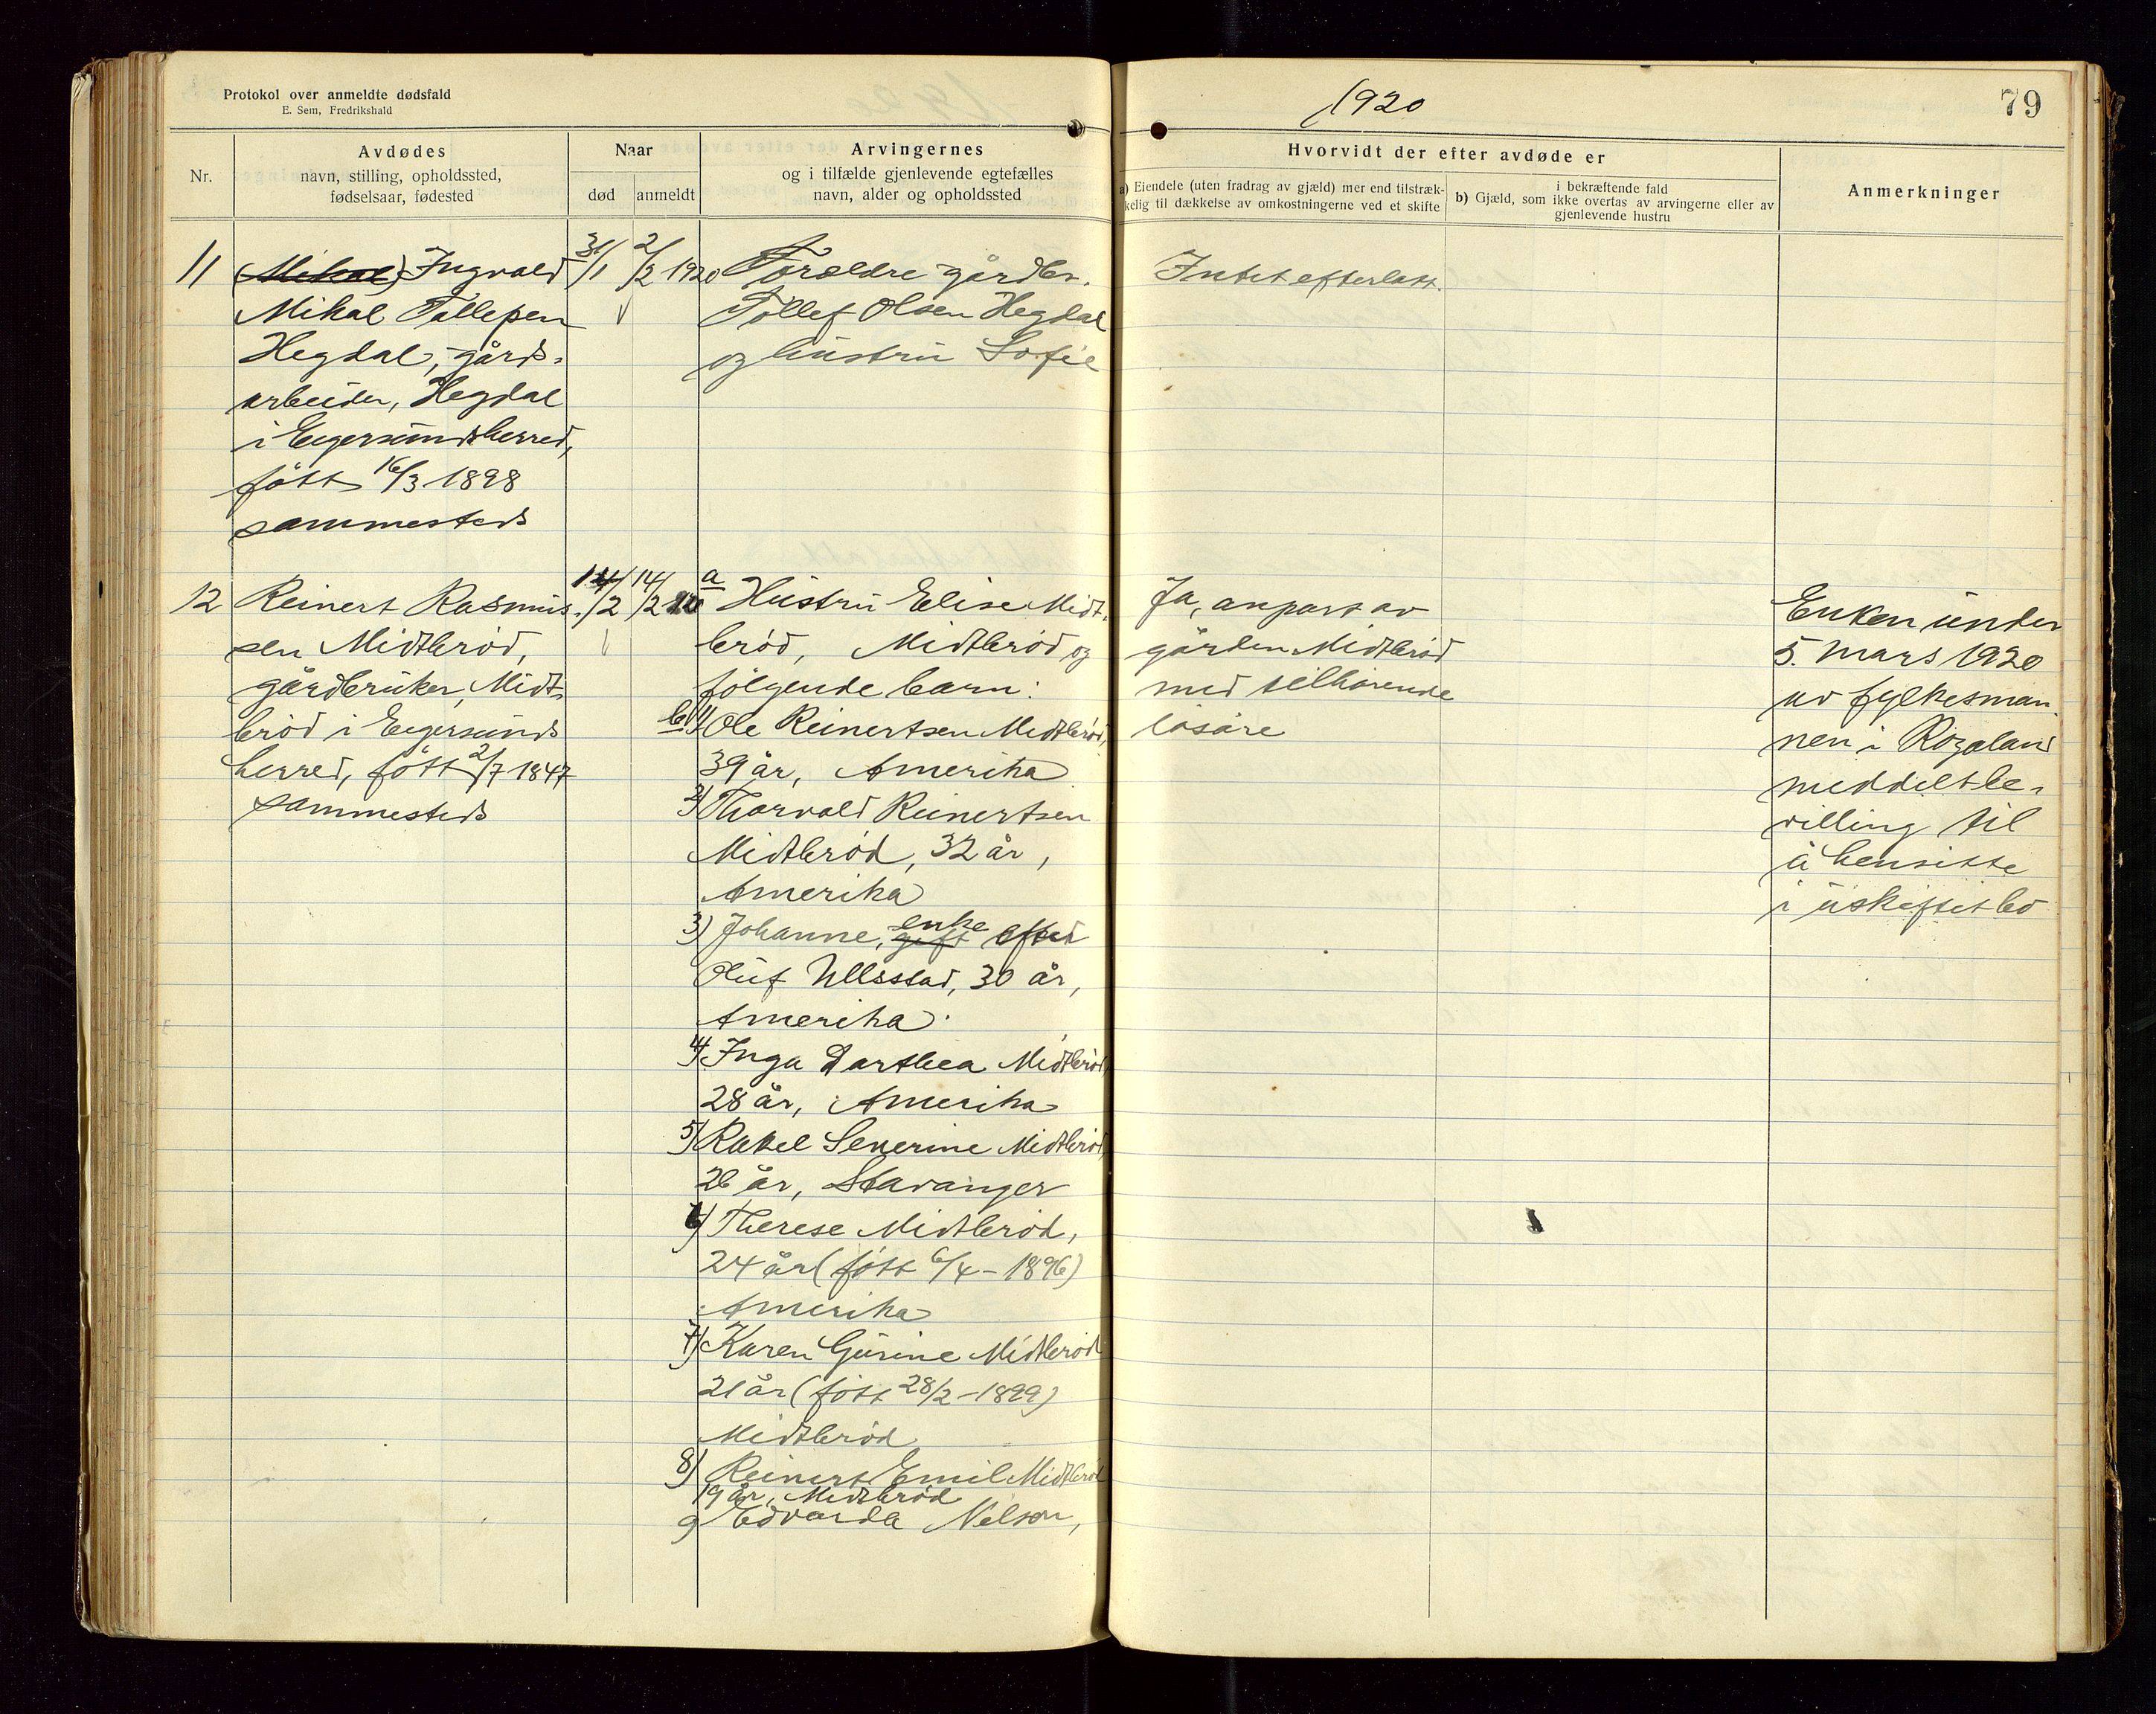 Protokol over anmeldte dødsfald
E. Sem, Fredrikshald
1920
79
Nr.
Avdødes
navn, stilling, opholdssted,
fødselsaar, fødested
Naar
død
anmeldt
Arvingernes
og i tilfælde gjenlevende egtefælles
navn, alder og opholdssted
Hvorvidt der efter avdøde er
a) Eiendele (uten fradrag av gjæld) mer end tilstræk-
kelig til dækkelse av omkostningerne ved et skifte
i bekræftende fald
b) Gjæld, som ikke overtas av arvingerne eller av
gjenlevende hustru
Anmerkninger
11
(Mikal) Ingvald
Mikal Tollefsen
Hegdal, gårds-
arbeider, Hegdal
i Eigersunds herred,
født 16/3 1898
sammesteds
31/1
2/2 1920
Forældre gårdbr.
Tollef Olsen Hegdal
og hustru Sofie
Intet efterlatt.
12
Reinert Rasmus-
sen Midtbrød,
gårdbruker, Midt-
brød i Eigersunds
herred, født 2/7 1847
sammesteds
14/2
a Hustru Elise Midt-
brød, Midtbrød og
følgende barn:
b 1) Ole Reinertsen Midtbrød,
39 år, Amerika
2) Thorvald Reinertsen
Midtbrød, 32 år,
Amerika
3) Johanne, gift enke efter
Oluf Ullsstad, 30 år,
Amerika.
4) Inga Darthea Midtbrød,
28 år, Amerika
5) Rakel Severine Midtbrød,
26 år, Stavanger
6) Therese Midtbrød,
24 år (født 6/4 - 1896)
Amerika
7) Karen Gurine Midtbrød
21 år (født 28/2 - 1899)
Midtbrød
8) Reinert Emil Midtbrød
19 år, Midtbrød
9 Edvarda Nelson,
Ja, anpart av
gården Midtbrød
med tilhørende
løsøre
Enken under
5. mars 1920
av fylkesman-
nen i Rogaland
meddelt be-
villing til
å hensitte
i uskiftet bo